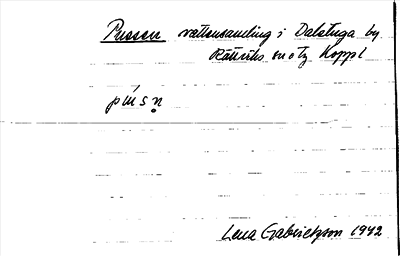 Pussen vattensamling i Dalstuga by.
Rättviks sn o tg Koppl
pusn̥
Lena Gabrielsson 1942